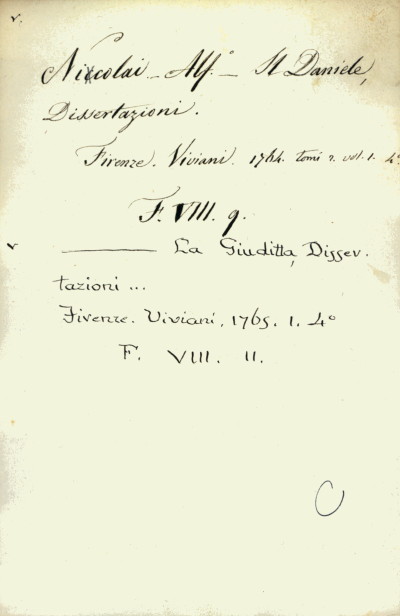 v.
Niccolai - Alf.° - Il Daniele,
Dissertazioni.
Firenze. Viviani. 1764. tomi 2. vol. 1. 4°
F. VIII. 9.
v
——— La Giuditta, Disser.
tazioni...
Firenze. Viviani, 1765. 1. 4°
F. VIII. 11.
C